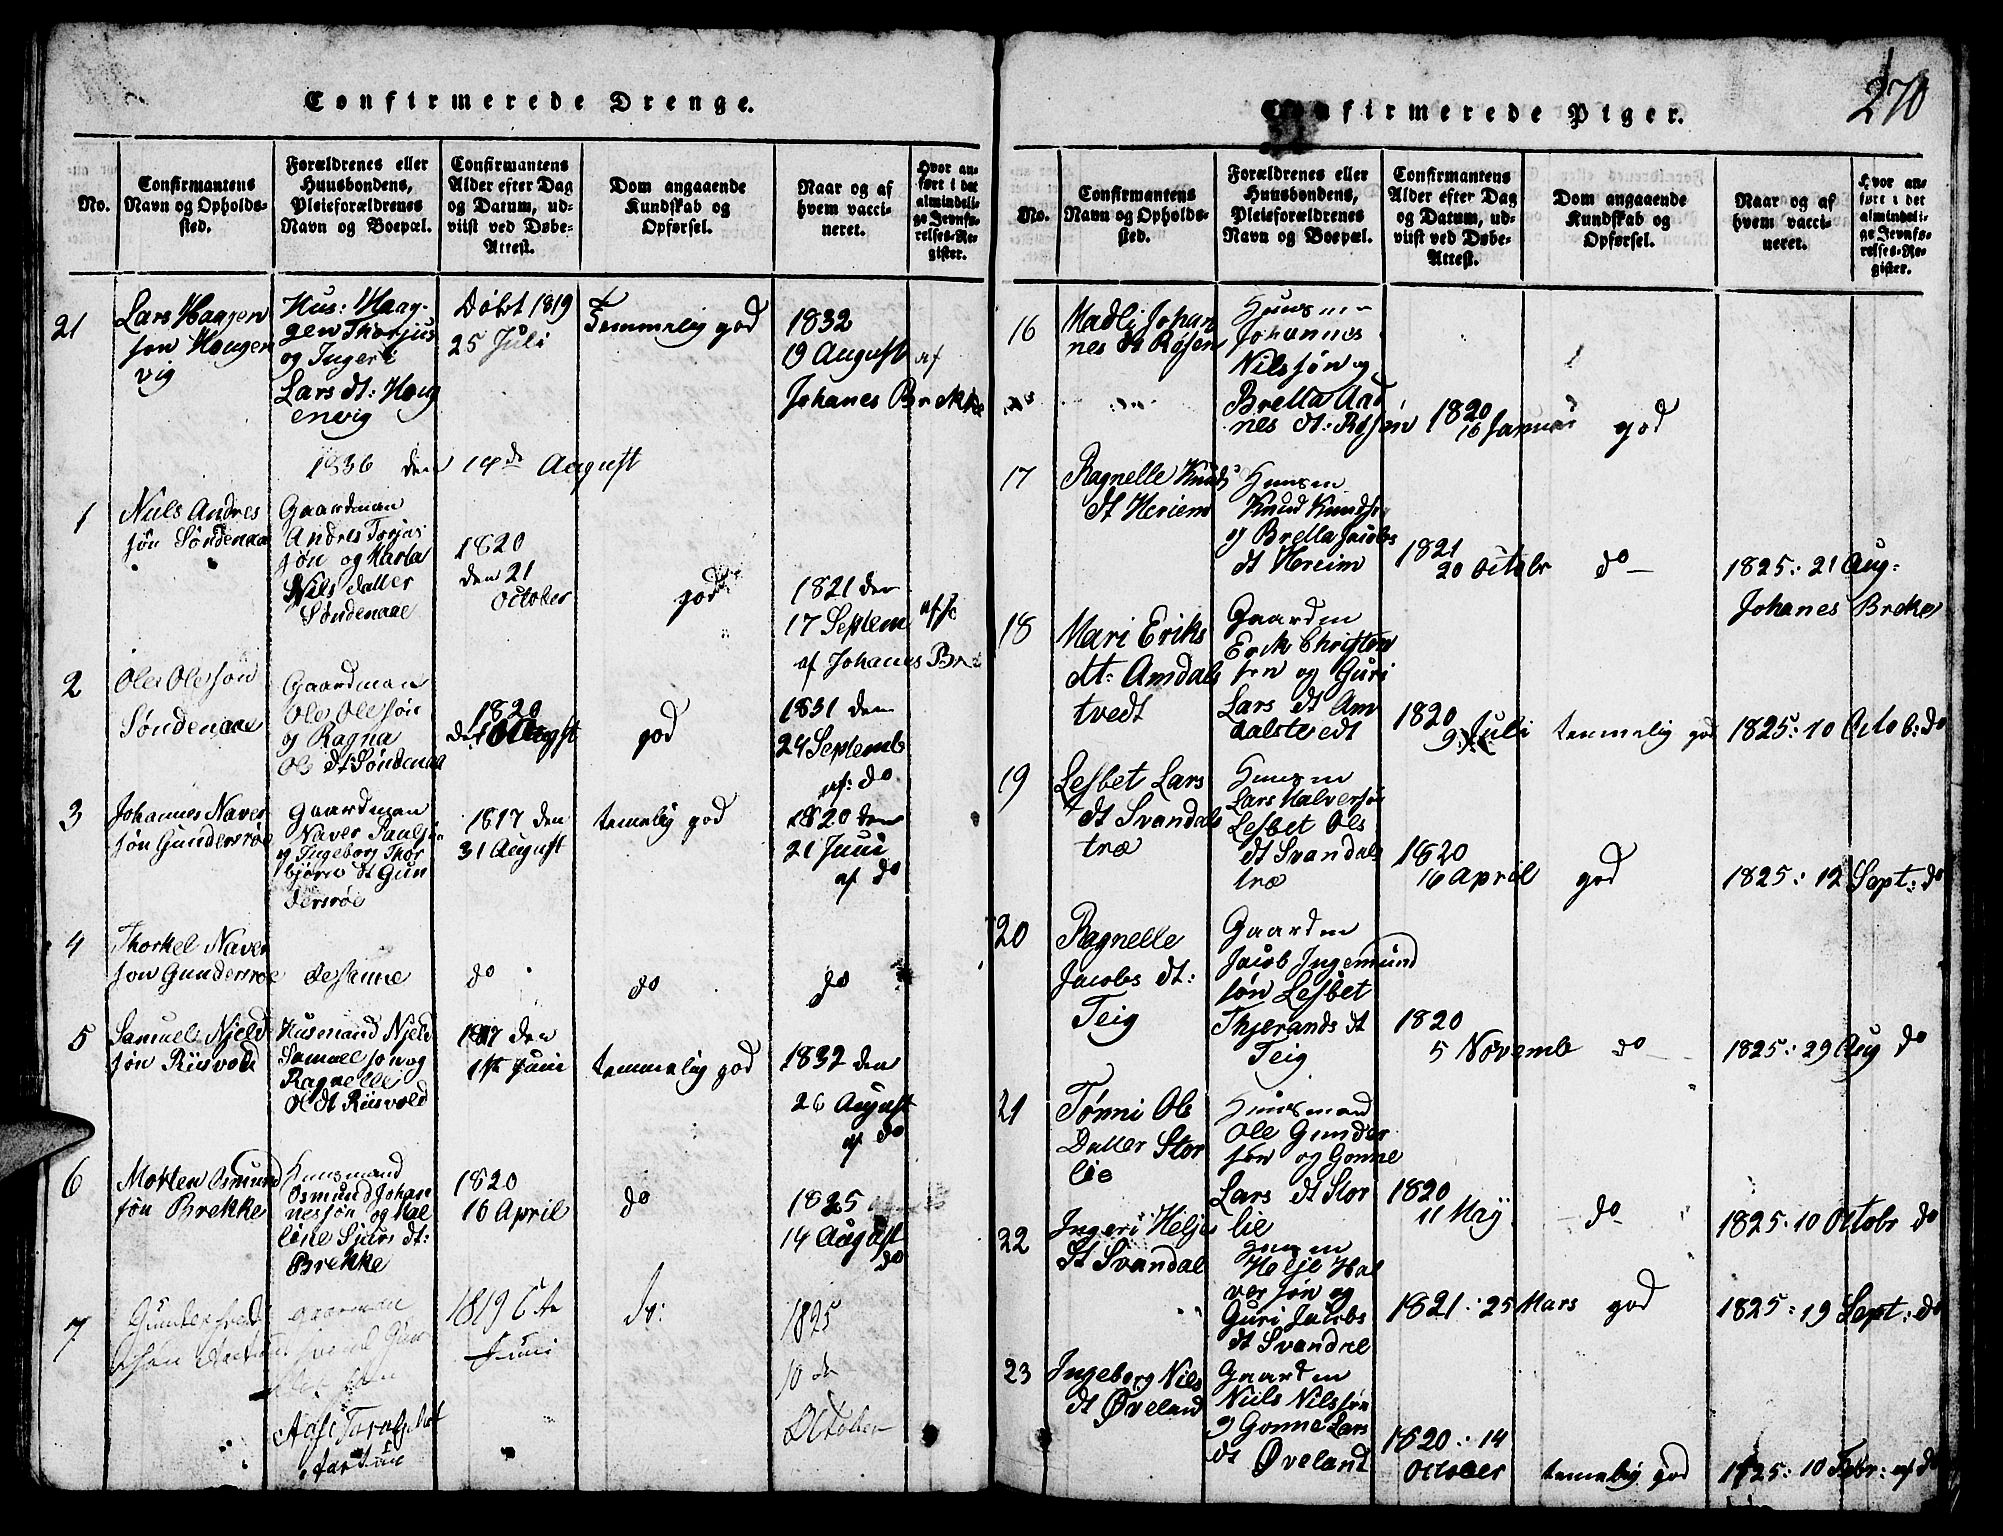 Confirmerede Drenge.
No.
Confirmantens
Navn og Opholds-
sted.
Forældrenes eller
Huusbondens,
Pleieforældrenes
Navn og Boepæl.
Confirmantens
Alder efter Dag
og Datum, ud-
viist ved Døbe-
Attest.
Dom angaaende
Kundskab og
Opførsel.
Naar og af
hvem vacci-
neret.
Hvor an-
ført i det
almindeli-
ge Jevnfø-
relses-Re-
gister.
21
Lars Haagen
søn Hougen
vig
Hus: Haag-
gen Thorjus
og Ingeri
Lars dt: Houg
envig
Døbt 1819
25 Juli
Temmelig god
1832
19 August af
Johanes Brekke
1836 den 14de August
1
Niels Andres
søn Søndenaae
Gaardman
Andres Torjus
søn og Marta
Nils datter
Søndenaae
1820
den 21
October
god
1821 den
17 Septem
af Johanes Bre
2
Ole Olessøn
Søndenaae
Gaardman
Ole Olessøn
og Ragna
Ols dt Søndenaa
1820
August
god
1831 den
24 Septemb
af: do
3
Johannes Naver
søn Gundersrøe
Gaardman
Naver Paulsøn
og Ingeborg Thor
bjørns dt Gun
dersrøe
1817 den
31 August
temelig god
1820 den
21 Juni
af do
4
Thorkel Naver
søn Gundersrøe
desamme
do
do
do
5
Samuel Njeld
søn Riisvold
Husmand Njeld
Samuelsøn og
Ragnelle
Ol dt Riisvold
1817 den
Juni
temmelig god
1832 den
26 August
af do
6
Morten Osmund
søn Brekke
Huusmand
Osmund Johan
nessøn og Hal
lene Sjurs dt:
Brekke
1820
16 April
do
1825
14 August
do
7
Gunder
Svend Gun
1819 6te
Juni
do:
1825
10 de
October
Confirmerede Piger.
270
No.
Confirmantens
Navn og Opholds-
sted.
Forældrenes eller
Huusbondens,
Pleieforældrenes
Navn og Boepæl.
Confirmantens
Alder efter Dag
og Datum, ud-
viist ved Døbe-
Attest.
Dom angaaende
Kundskab og
Opførsel.
Naar og af
hvem vacci-
neret.
Hvor an-
ført i det
almindeli-
ge Jevnfø-
relses-Re-
gister.
16
Madli Johan
nes dt Røsen
Huusm
Johannes
Nilssøn og
Brella Aad
nes dt: Røsen
1820
16 Januar
god
17
Ragnelle Knuds
dt Heriem
Huusm
Knud Knuds
og Brella Jacobs
dt Hereim
1821
20 Octobr
do
1825: 21 Aug:
Johanes Breke
18
Mari Eriks
dt: Amdals
tvedt
Gaardm
Erik Christen
sen og Guri
Lars dt Am
dalstvedt
1820
9 Juli
temmelig god
1825: 10 Octob: do
19
Lesbet Lars
dt Svandals
træ
Huusm
Lars Halversøn
Lesbet Ols
dt Svandals
træ
1820
16 April
god
1825: 12 Sept: do
20
Ragnelle
Jacobs dt:
Teig
Gaardm
Jacob Ingemund
søn Lesbet
Thjerands dt
Teig
1820
5 Novemb
do
1825: 29 Aug do
21
Tønni Ols
Datter Stor
lie
Huusmand
Ole Gunder
søn og Gonne
Lars dt Stor
lie
1820
11 May
do
1825: 10 Octobr do
22
Ingeri Helje
dt Svandal
Huusm
Helje Hal
versøn og
Guri Jacobs
dt Svandal
1821: 25 Mars
god
1825: 19 Sept: do
23
Ingeborg Nils
dt Øveland
Gaardm
Niels Nilssøn
og Gonne Lars
dt Øveland
1820: 14
October
temelig god
1825: 10 Febr: af do